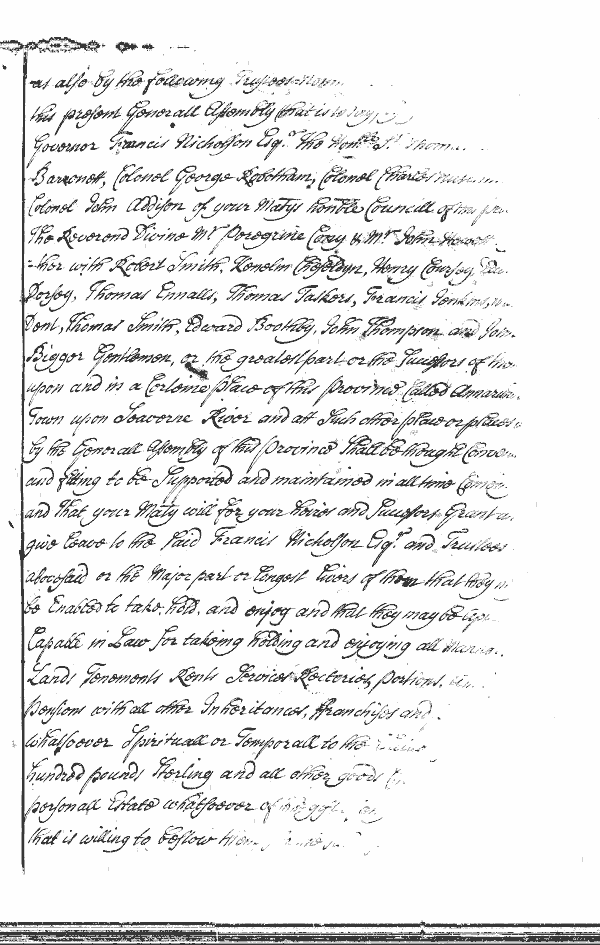 as also by the following Trustees
this present Generall Assembly that is to say
Governor Francis Nicholson Esqr. the Honble Sr. Thom
Barronett, Colonel George Robotham, Colonel Charles
Colonel John Addison of your Matys honble Councill of
The Reverend Divine Mr Peregrine Cony & Mr John Hewett
=ther with Robert Smith, Kenelm Cheseldyn, Henry Coursey,
Dorsey, Thomas Ennalls, Thomas Taskers, Francis Jenkins,
Dent, Thomas Smith, Edward Boothby, John Thompson and John
Bigger Gentlemen, or the greatest part or the Successors of
upon and in a Certeine place of this Province Called Annarun
Town upon Seaverne River and att Such other place or places
by the Generall Assembly of this Province Shall be thought
and fitting to be Supported and maintained in all time Coming
and that your Maty will for your heires and Successors Grant
give leave to the Said Francis Nicholson Esqr. and Trustees
abovesaid or the Major part or longest livers of them that they
be Enabled to take, hold, and enjoy and that they may be
Capable in Law for takeing holding and enjoying all
Lands Tenements Rents Services Rectories, portions,
pensions with all other Inheritances, ffranchises and
whatsoever Spirituall or Temporall to the
hundred pounds Sterling and all other goods
personall Estate whatsoever of
that is willing to bestow them